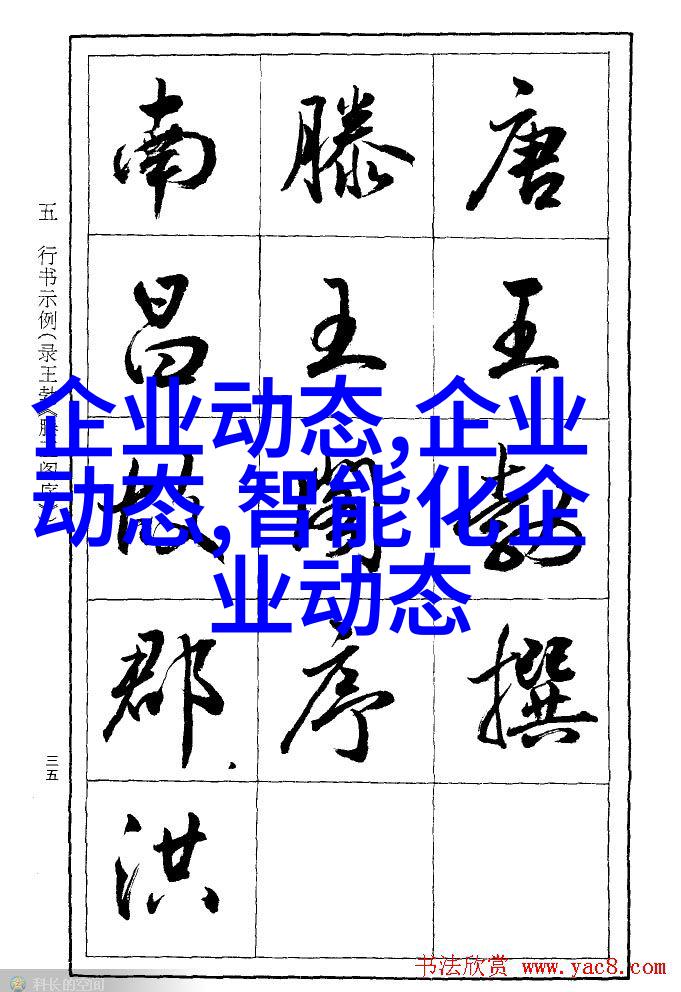 唐王勃撰
滕王閣序
南昌故郡洪
五 行书示例(录王勃《滕王阁序》)
三五
企业动态,企业
动态,智能化企
业动态
书法欣赏 www.yac8.com
科长的空间